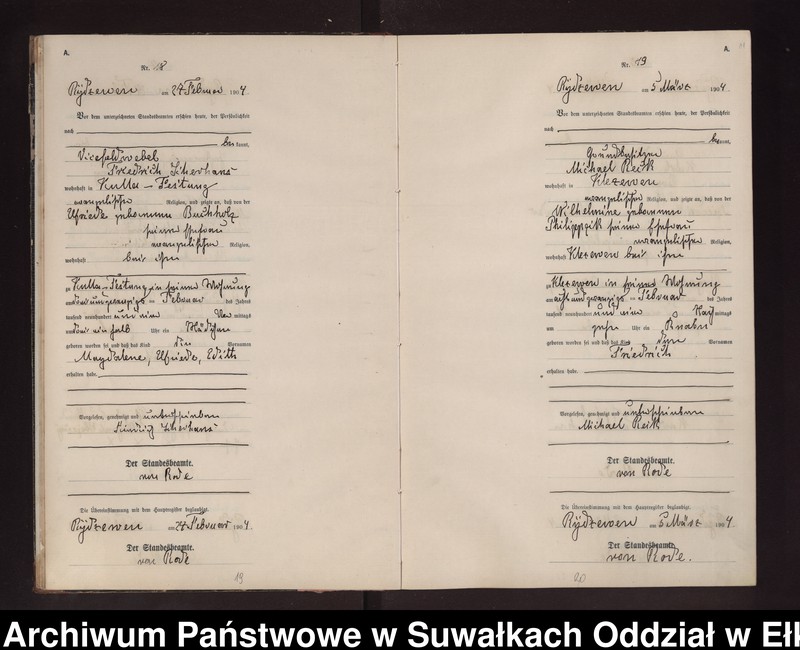 A.
Nr. 18
Rydzewen am 27 Februar 1904
Vor dem unterzeichneten Standesbeamten erschien heute, der Persönlichkeit
nach
bekannt,
Vicefeldwebel
Friedrich
wohnhaft in Kulla-Festung
evangelischer Religion, und zeigte an, daß von der
Elfriede geborenen Buchholz
seiner Ehefrau
evangelischer Religion,
wohnhaft bei ihm
zu Kulla-Festung in seiner Wohnung
am Februar des Jahres
tausend neunhundert und vier Vor mittags
um ein halb Uhr ein Mädchen
geboren worden sei und daß das Kind die Vornamen
Magdalene, Elfriede, Edith
erhalten habe.
Vorgelesen, genehmigt und unterschrieben
Der Standesbeamte.
von Rode
Die Übereinstimmung mit dem Hauptregister beglaubigt.
Rydzewen am 27 Februar 1904.
Der Standesbeamte.
von Rode
19
A.
Nr. 19
Rydzewen am 5 März 1904.
Vor dem unterzeichneten Standesbeamten erschien heute, der Persönlichkeit
nach
bekannt,
Grundbesitzer
Michael Reik
wohnhaft in Klezewen
evangelischer Religion, und zeigte an, daß von der
Wilhelmine geborenen
seiner Ehefrau
evangelischer Religion,
wohnhaft Klezewen bei ihm
zu Klezewen in seiner Wohnung
am acht und zwanzigsten Februar des Jahres
tausend neunhundert und vier Nach mittags
um zehn Uhr ein Knabe
geboren worden sei und daß das Kind den Vornamen
Friedrich
erhalten habe.
Vorgelesen, genehmigt und unterschrieben
Michael Reik
Der Standesbeamte.
von Rode
Die Übereinstimmung mit dem Hauptregister beglaubigt.
Rydzewen am 5 März 1904
Der Standesbeamte.
von Rode.
20
Archiwum Państwowe w Suwałkach Oddział w Ełk